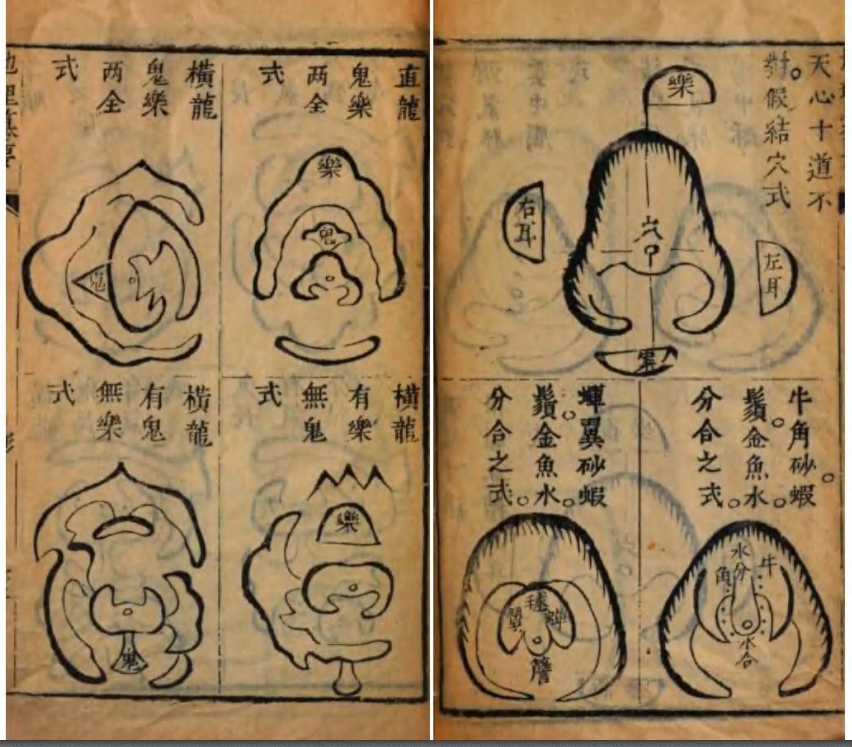 天心十道不
對。假結穴式
樂
右耳
穴
左耳
案
牛角砂。蝦
鬚。金魚水。
分合之式。
牛
角
水分
水合
蟬翼砂。蝦
鬚。金魚水。
分合之式。
蟬
翼
毬
簷
直龍
鬼樂
两全
式
樂
鬼
橫龍
鬼樂
两全
式
鬼
橫龍
有樂
無鬼
式
樂
橫龍
有鬼
無樂
式
鬼